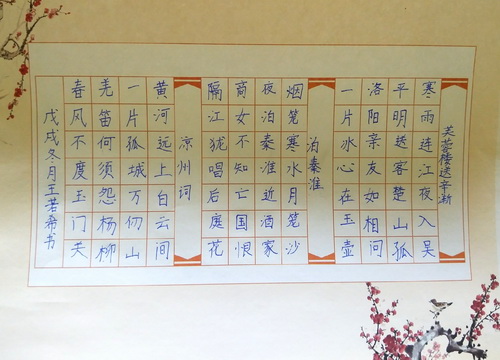 芙蓉楼送辛渐
寒雨连江夜入吴
平明送客楚山孤
洛阳亲友如相问
一片冰心在玉壶
泊秦淮
烟笼寒水月笼沙
夜泊秦淮近酒家
商女不知亡国恨
隔江犹唱后庭花
凉州词
黄河远上白云间
一片孤城万仞山
羌笛何须怨杨柳
春风不度玉门关
戊戌冬月王若希书